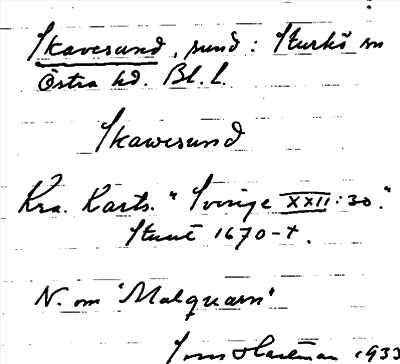 Skavesund, sund: Sturkö sn
Östra hd. Bl. l.
Skawesund
Kra. Karts. "Sverige XXII:30."
1670-t.
N. om "Malquarn"
1933